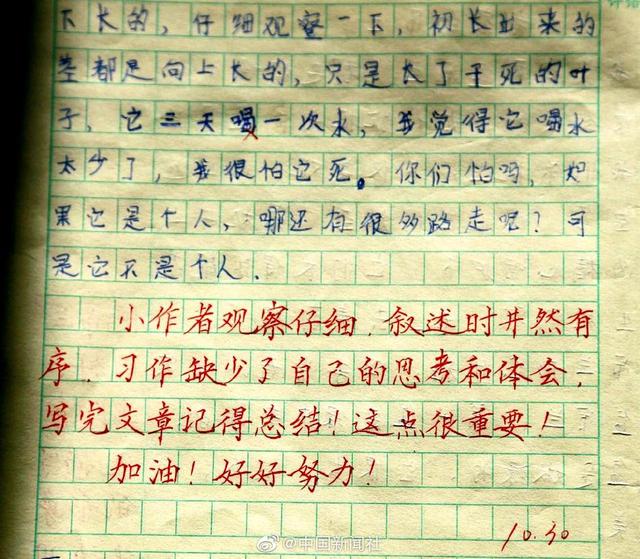 下长的，仔细观察一下，初长出来的
茎都是向上长的，只是长了干死的叶
子，它三天喝一次水，我觉得它喝水
太少了，我很怕它死。你们怕吗，如
果它是个人，哪还有很多路走呢？可
是它不是个人．
小作者观察仔细，叙述时井然有
序．习作缺少了自己的思考和体会，
写完文章记得总结！这点很重要！
加油！好好努力！
@中国新闻社
10.30